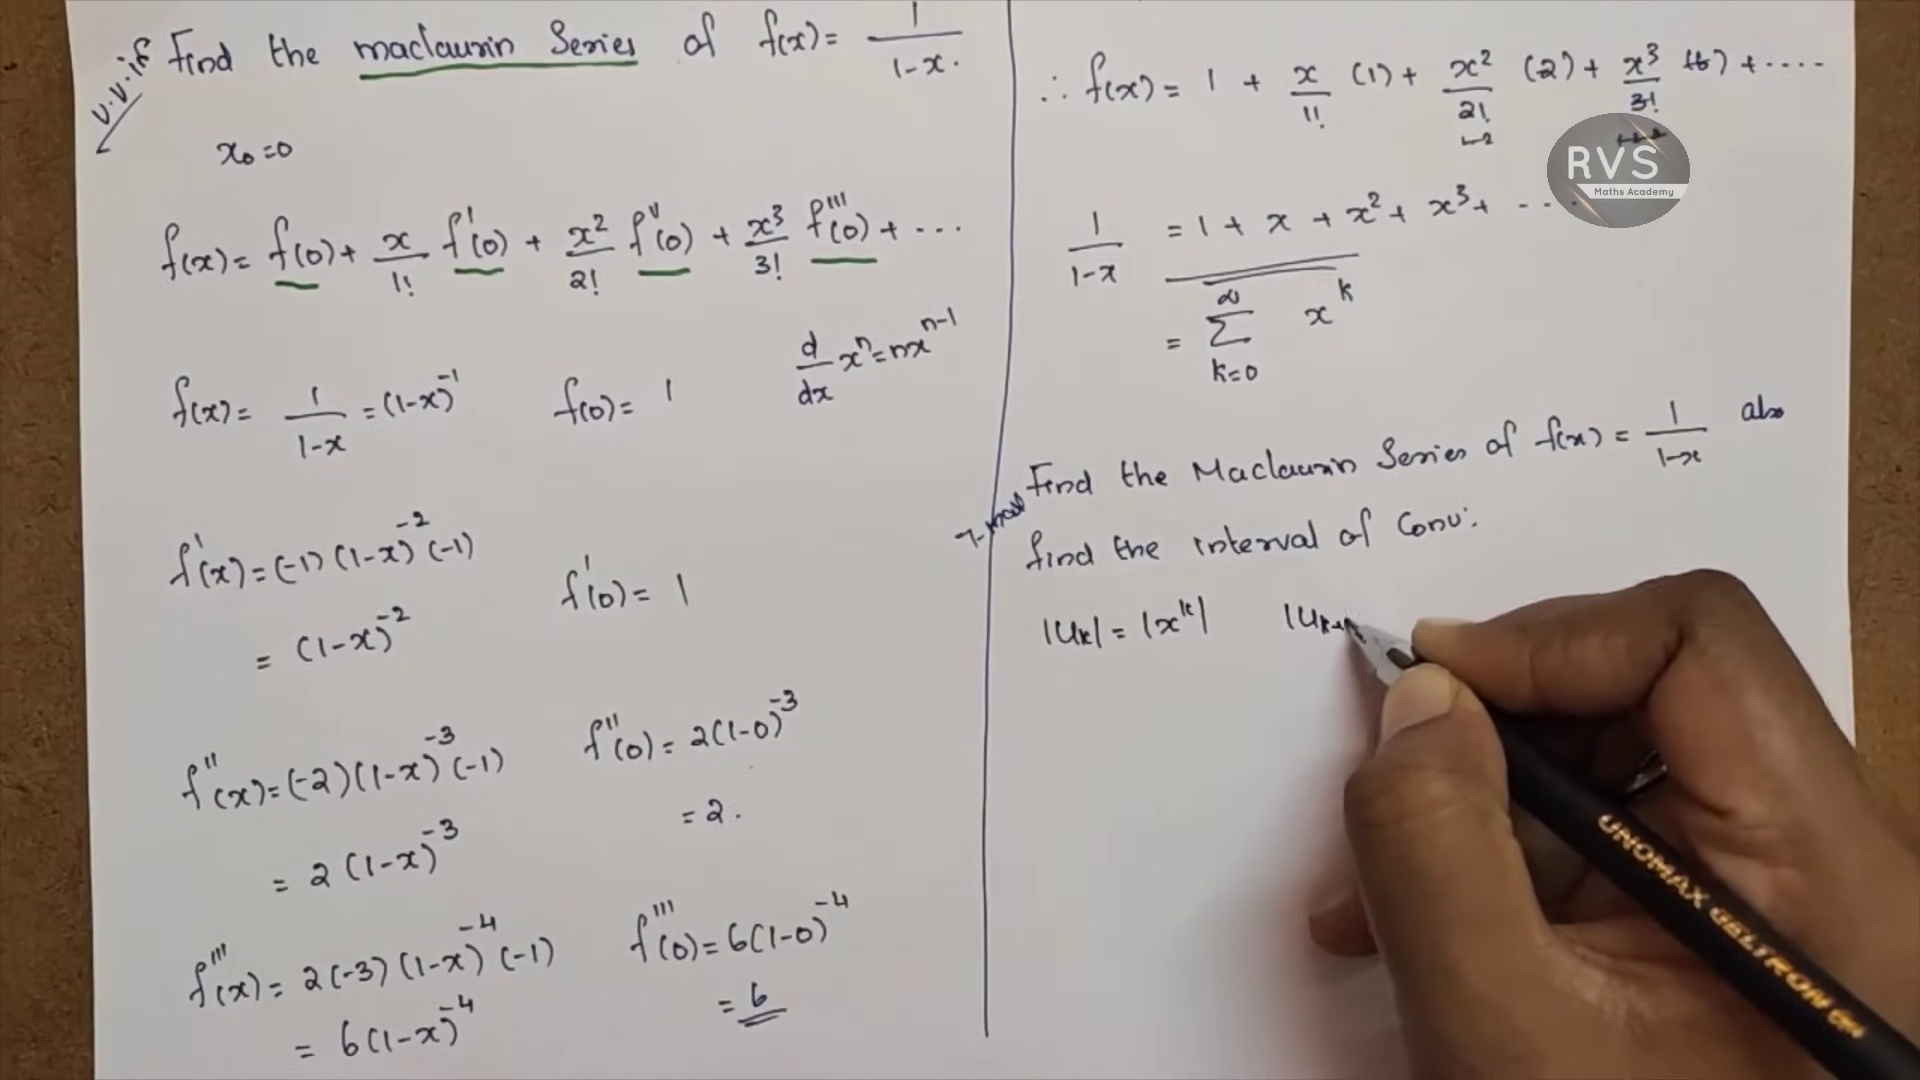 v.v.if
Find the maclaurin Series of f(x) = 1/(1-x).
x₀=0
f(x) = f(0) + x/1! f'(0) + x²/2! f''(0) + x³/3! f'''(0) + ...
d/dx xⁿ = nxⁿ⁻¹
f(x) = 1/(1-x) = (1-x)⁻¹ f(0) = 1
f'(x) = (-1)(1-x)⁻²(-1)
= (1-x)⁻² f'(0) = 1
f''(x) = (-2)(1-x)⁻³(-1) f''(0) = 2(1-0)⁻³
= 2(1-x)⁻³ = 2.
f'''(x) = 2(-3)(1-x)⁻⁴(-1) f'''(0) = 6(1-0)⁻⁴
= 6(1-x)⁻⁴ = 6
∴ f(x) = 1 + x/1! (1) + x²/2! (2) + x³/3! (6) + ....
RVS
Maths Academy
1/(1-x) = 1 + x + x² + x³ + ....
= ∞ Σ k=0 xᵏ
Find the Maclaurin Series of f(x) = 1/(1-x) also
find the interval of Conv:
|Uₖ| = |xᵏ| |Uₖ₊
UNOMAX GELTRON GN